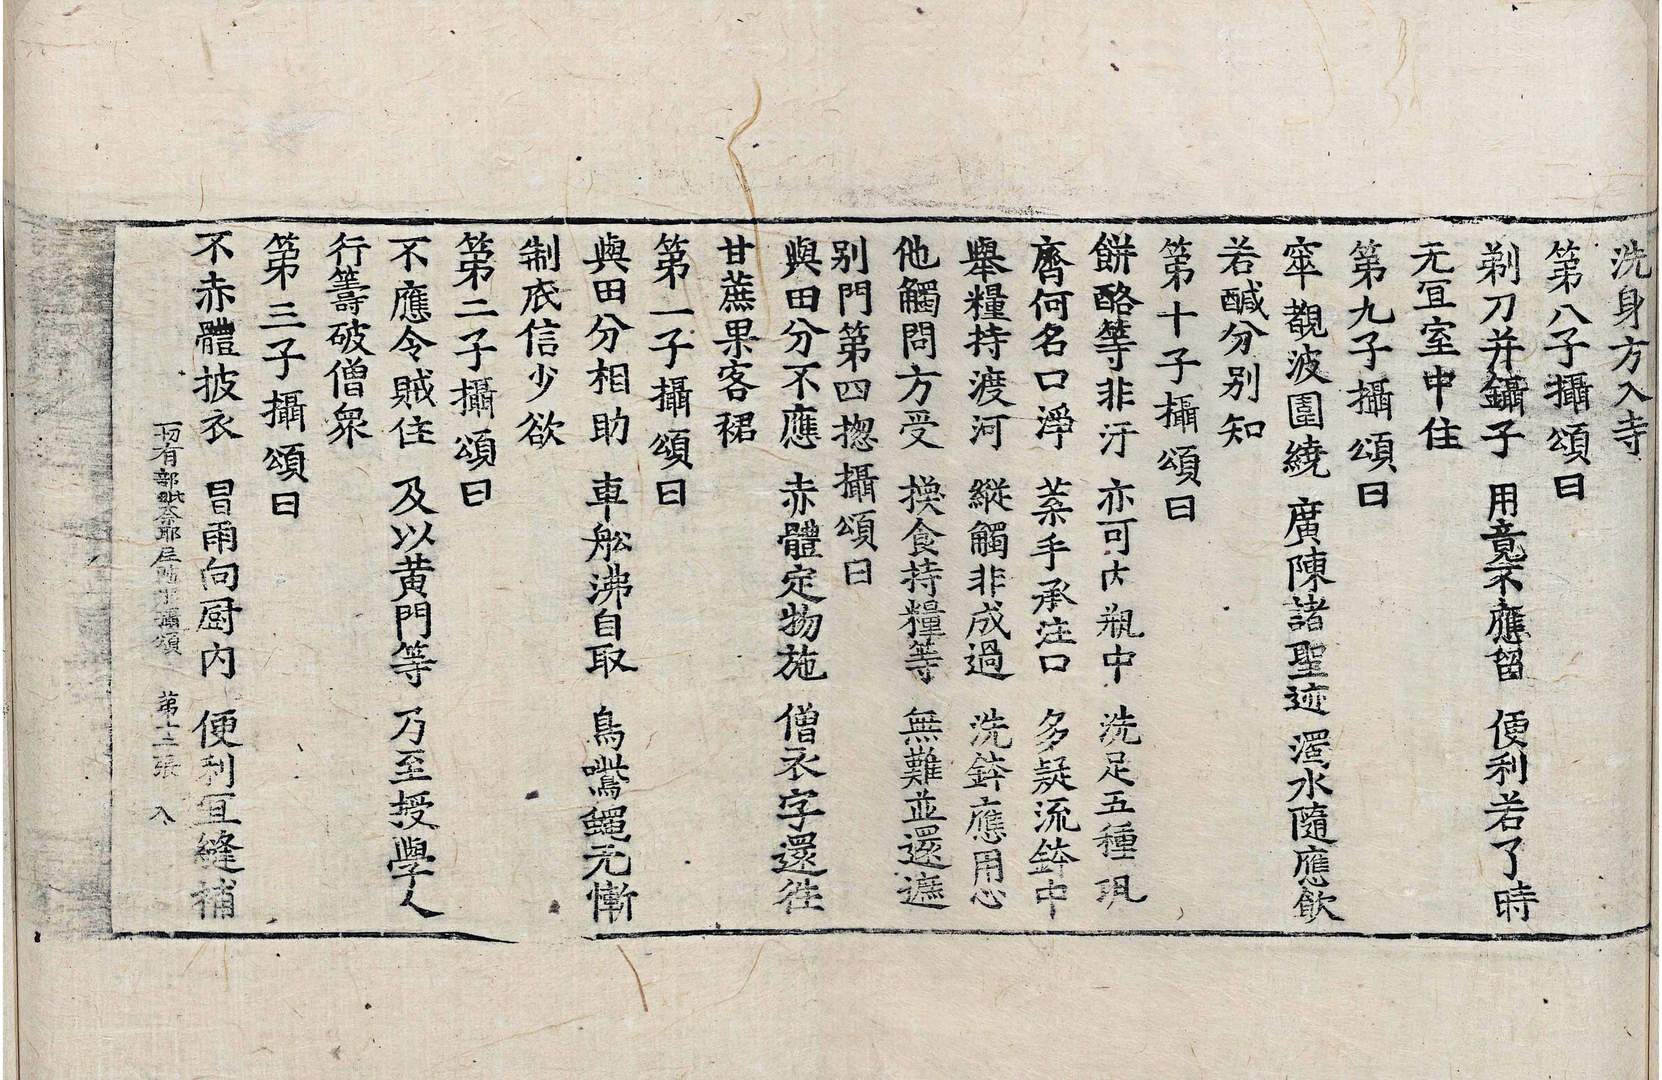 洗身方入寺
第八子攝頌曰
剃刀并鑷子　用竟不應留　便利若了時
无宜室中住
第九子攝頌曰
窣覩波圍繞　廣陳諸聖迹　濁水隨應飲
若醎分別知
第十子攝頌曰
餅酪等非汙　亦可內瓶中　洗足五種
齊何名口淨　菜手承注口　多疑流鉢中
舉糧持渡河　縱觸非成過　洗鉢應用心
他觸問方受　換食持糧等　無難並還遮
別門第四揔攝頌曰
與田分不應　赤體定物施　僧衣字還往
甘蔗果客裙
第一子攝頌曰
與田分相助　車舩沸自取　鳥鷔蠅无慚
制底信少欲
第二子攝頌曰
不應令賊住　及以黃門等　乃至授學人
行籌破僧衆
第三子攝頌曰
不赤體披衣　冒雨向厨內　便利宜縫補
有部毗奈耶　攝頌　第十三張　入